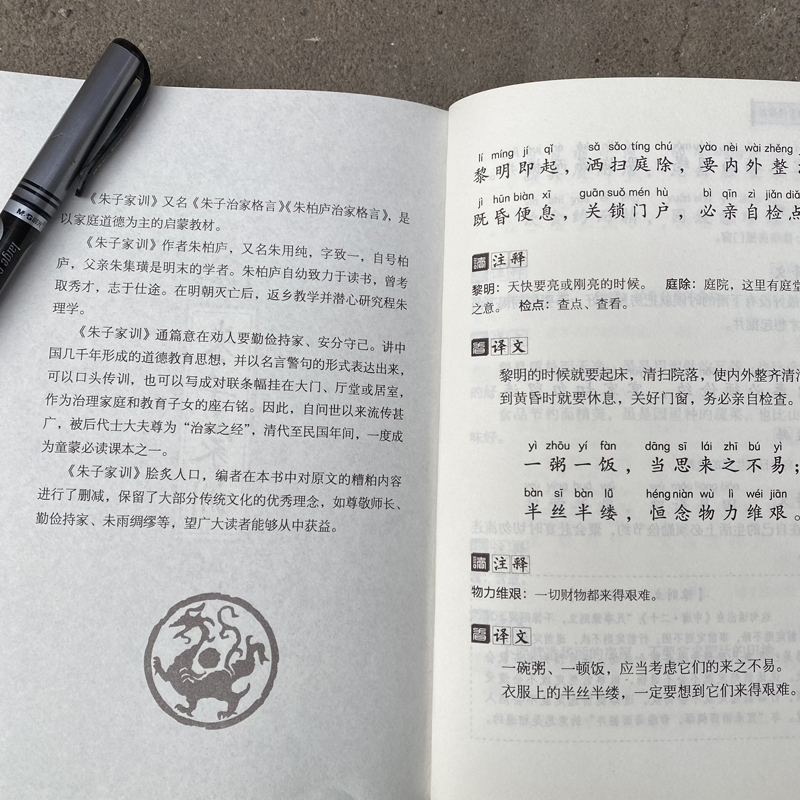 《朱子家训》又名《朱子治家格言》《朱柏庐治家格言》，是
以家庭道德为主的启蒙教材。
《朱子家训》作者朱柏庐，又名朱用纯，字致一，自号柏
庐，父亲朱集璜是明末的学者。朱柏庐自幼致力于读书，曾考
取秀才，志于仕途。在明朝灭亡后，返乡教学并潜心研究程朱
理学。
《朱子家训》通篇意在劝人要勤俭持家、安分守己。讲中
国几千年形成的道德教育思想，并以名言警句的形式表达出来，
可以口头传训，也可以写成对联条幅挂在大门、厅堂或居室，
作为治理家庭和教育子女的座右铭。因此，自问世以来流传甚
广，被后代士大夫尊为“治家之经”，清代至民国年间，一度成
为童蒙必读课本之一。
《朱子家训》脍炙人口，编者在本书中对原文的糟粕内容
进行了删减，保留了大部分传统文化的优秀理念，如尊敬师长、
勤俭持家、未雨绸缪等，望广大读者能够从中获益。
M&G
large
lí míng jí qǐ sǎ sǎo tíng chú yào nèi wài zhěng
黎明即起，洒扫庭除，要内外整
jì hūn biàn xī guān suǒ mén hù bì qīn zì jiǎn diǎ
既昏便息，关锁门户，必亲自检点
注释
黎明：天快要亮或刚亮的时候。 庭除：庭院，这里有庭堂
之意。 检点：查点、查看。
译文
黎明的时候就要起床，清扫院落，使内外整齐清
到黄昏时就要休息，关好门窗，务必亲自检查。
yì zhōu yí fàn dāng sī lái zhī bú yì
一粥一饭，当思来之不易；
bàn sī bàn lǚ héng niàn wù lì wéi jiān
半丝半缕，恒念物力维艰。
注释
物力维艰：一切财物都来得艰难。
译文
一碗粥、一顿饭，应当考虑它们的来之不易。
衣服上的半丝半缕，一定要想到它们来得艰难。